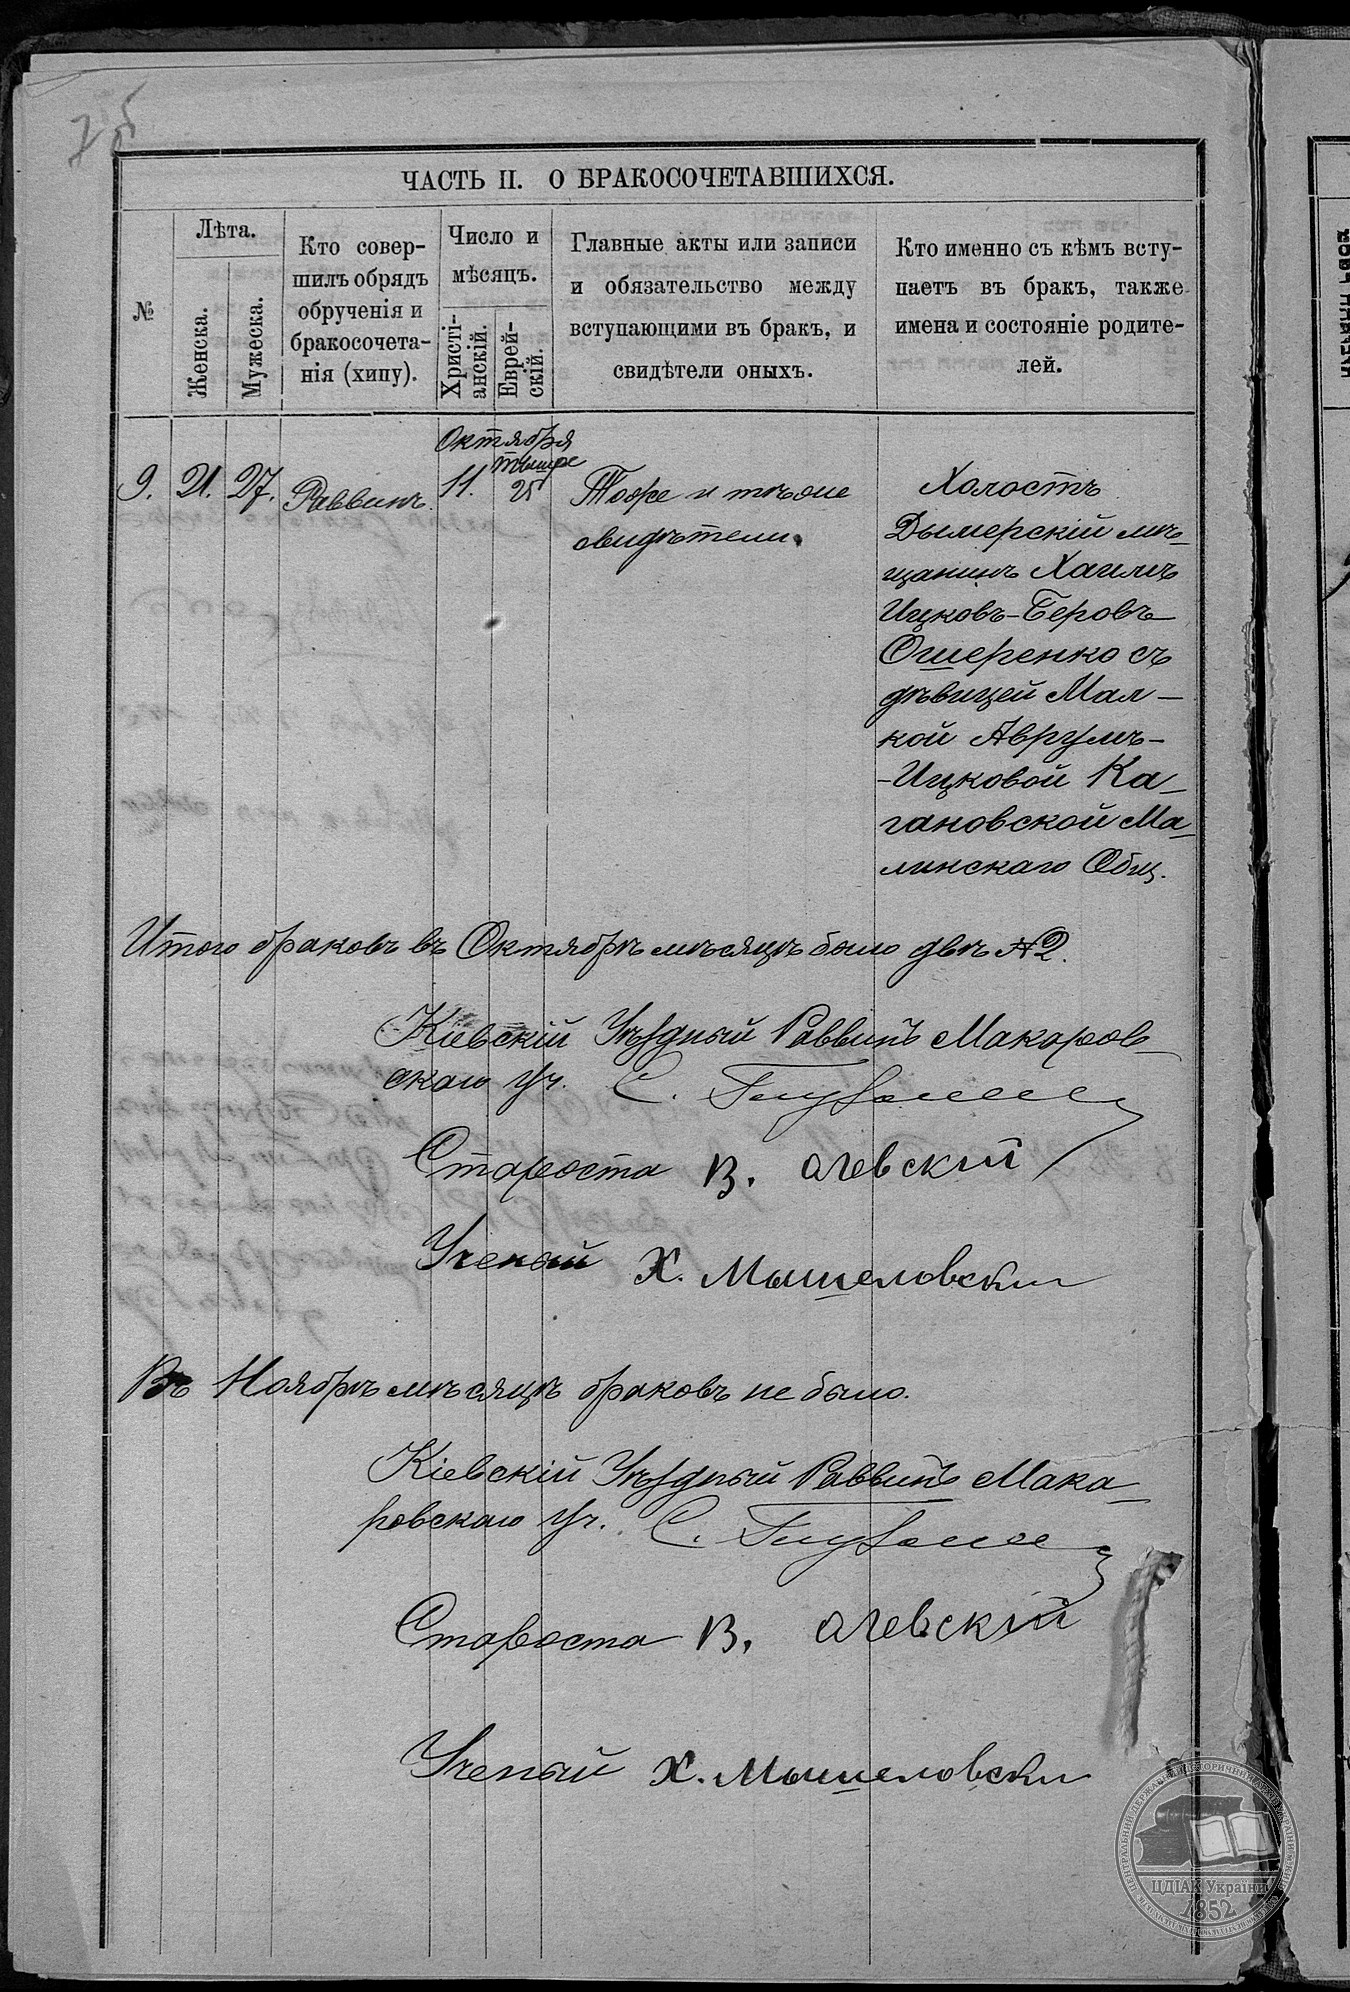 ЧАСТЬ II. О БРАКОСОЧЕТАВШИХСЯ.
№
Лѣта.
Женска.
Мужеска.
Кто совер-
шилъ обрядъ
обрученія и
бракосочета-
нія (хипу).
Число и
мѣсяцъ.
Христі-
анскій.
Еврей-
скій.
Главные акты или записи
и обязательство между
вступающими въ бракъ, и
свидѣтели оныхъ.
Кто именно съ кѣмъ всту-
паетъ въ бракъ, также
имена и состояніе родите-
лей.
Октября
тишре
9. 21. 27. Раввинъ. 11. 25
Тоже и тѣ же
свидѣтели.
Холостъ
Дымерскій мѣ-
щанинъ Хаимъ
Ицковъ-Беровъ
Ошеренко съ
дѣвицей Мал-
кой Аврумъ-
-Ицковой Ка-
гановской Ма-
линскаго Общ.
Итого браковъ въ Октябрѣ мѣсяцѣ было двѣ №2.
Кіевскій Уѣздный Раввинъ Макаров-
скаго уч. С.
Староста В.
Ученый Х. Мышеловски
Въ Ноябрѣ мѣсяцѣ браковъ не было.
Кіевскій Уѣздный Раввинъ Мака-
ровскаго уч. С.
Староста В.
Ученый Х. Мышеловски
ЦДІАК України
1852